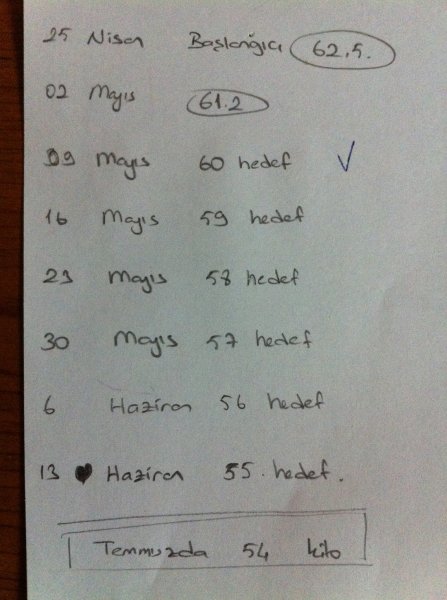 25 Nisan Başlangıcı 62,5.
02 Mayıs 61.2
09 Mayıs 60 hedef ✓
16 Mayıs 59 hedef
23 Mayıs 58 hedef
30 Mayıs 57 hedef
6 Haziran 56 hedef
13 ♥ Haziran 55. hedef.
Temmuzda 54 kilo